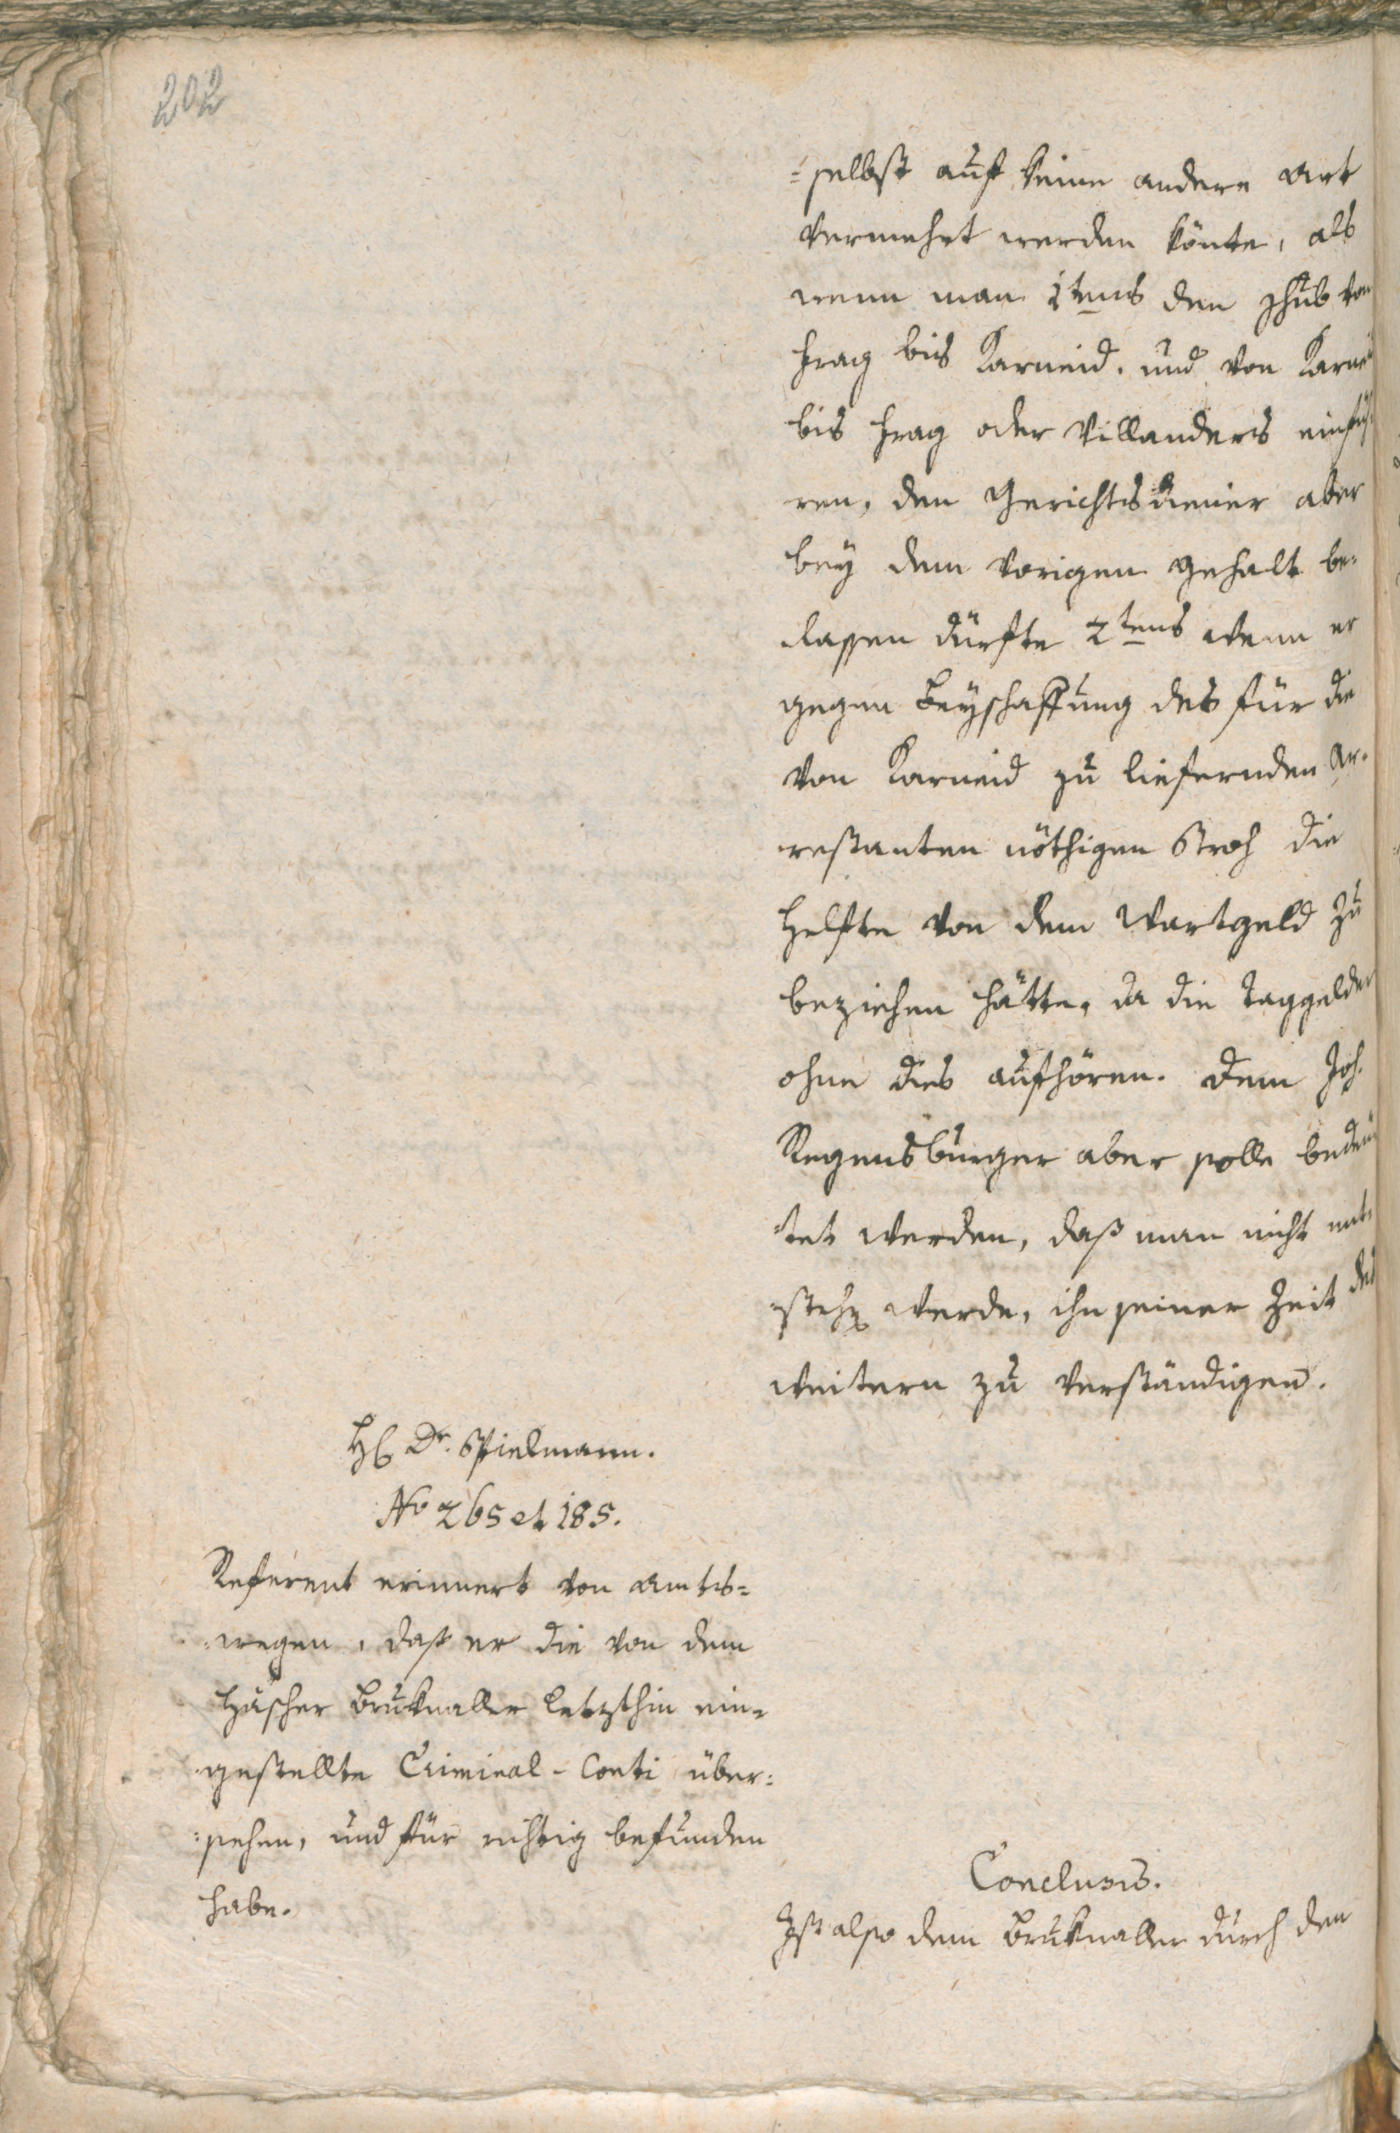 202
=selbst auf keine andere Art
vermehrt werden könte, als
wenn man 1tens den Schub von
Frag bis Karneid. und von Karneid
bis Frag oder Villanders einfüh
ren, den Gerichtsdiener aber
bey dem vorigen Gehalt be=
lassen dürfte 2tens wenn er
gegen Beyschaffung des für die
von Karneid zu liefernden Ar=
restanten nöthigen Stroh die
Helfte von dem Wartgeld zu
beziehen hätte, da die Taggelder
ohne dies aufhören. Dem Joh.
Regensburger aber solle bedeu
=tet werden, daß man nicht ent=
=stehen werde, ihn seiner Zeit des
weitern zu verständigen.
H: Dr. Spielmann.
No 265 et 185.
Referent erinnert von Amts=
=wegen, daß er die von dem
Häscher Brukmaller letzthin ein=
gestellte Criminal-Conti über=
=sehen, und für richtig befunden
habe.
Conclusus.
Ist also dem Brukmaller durch den